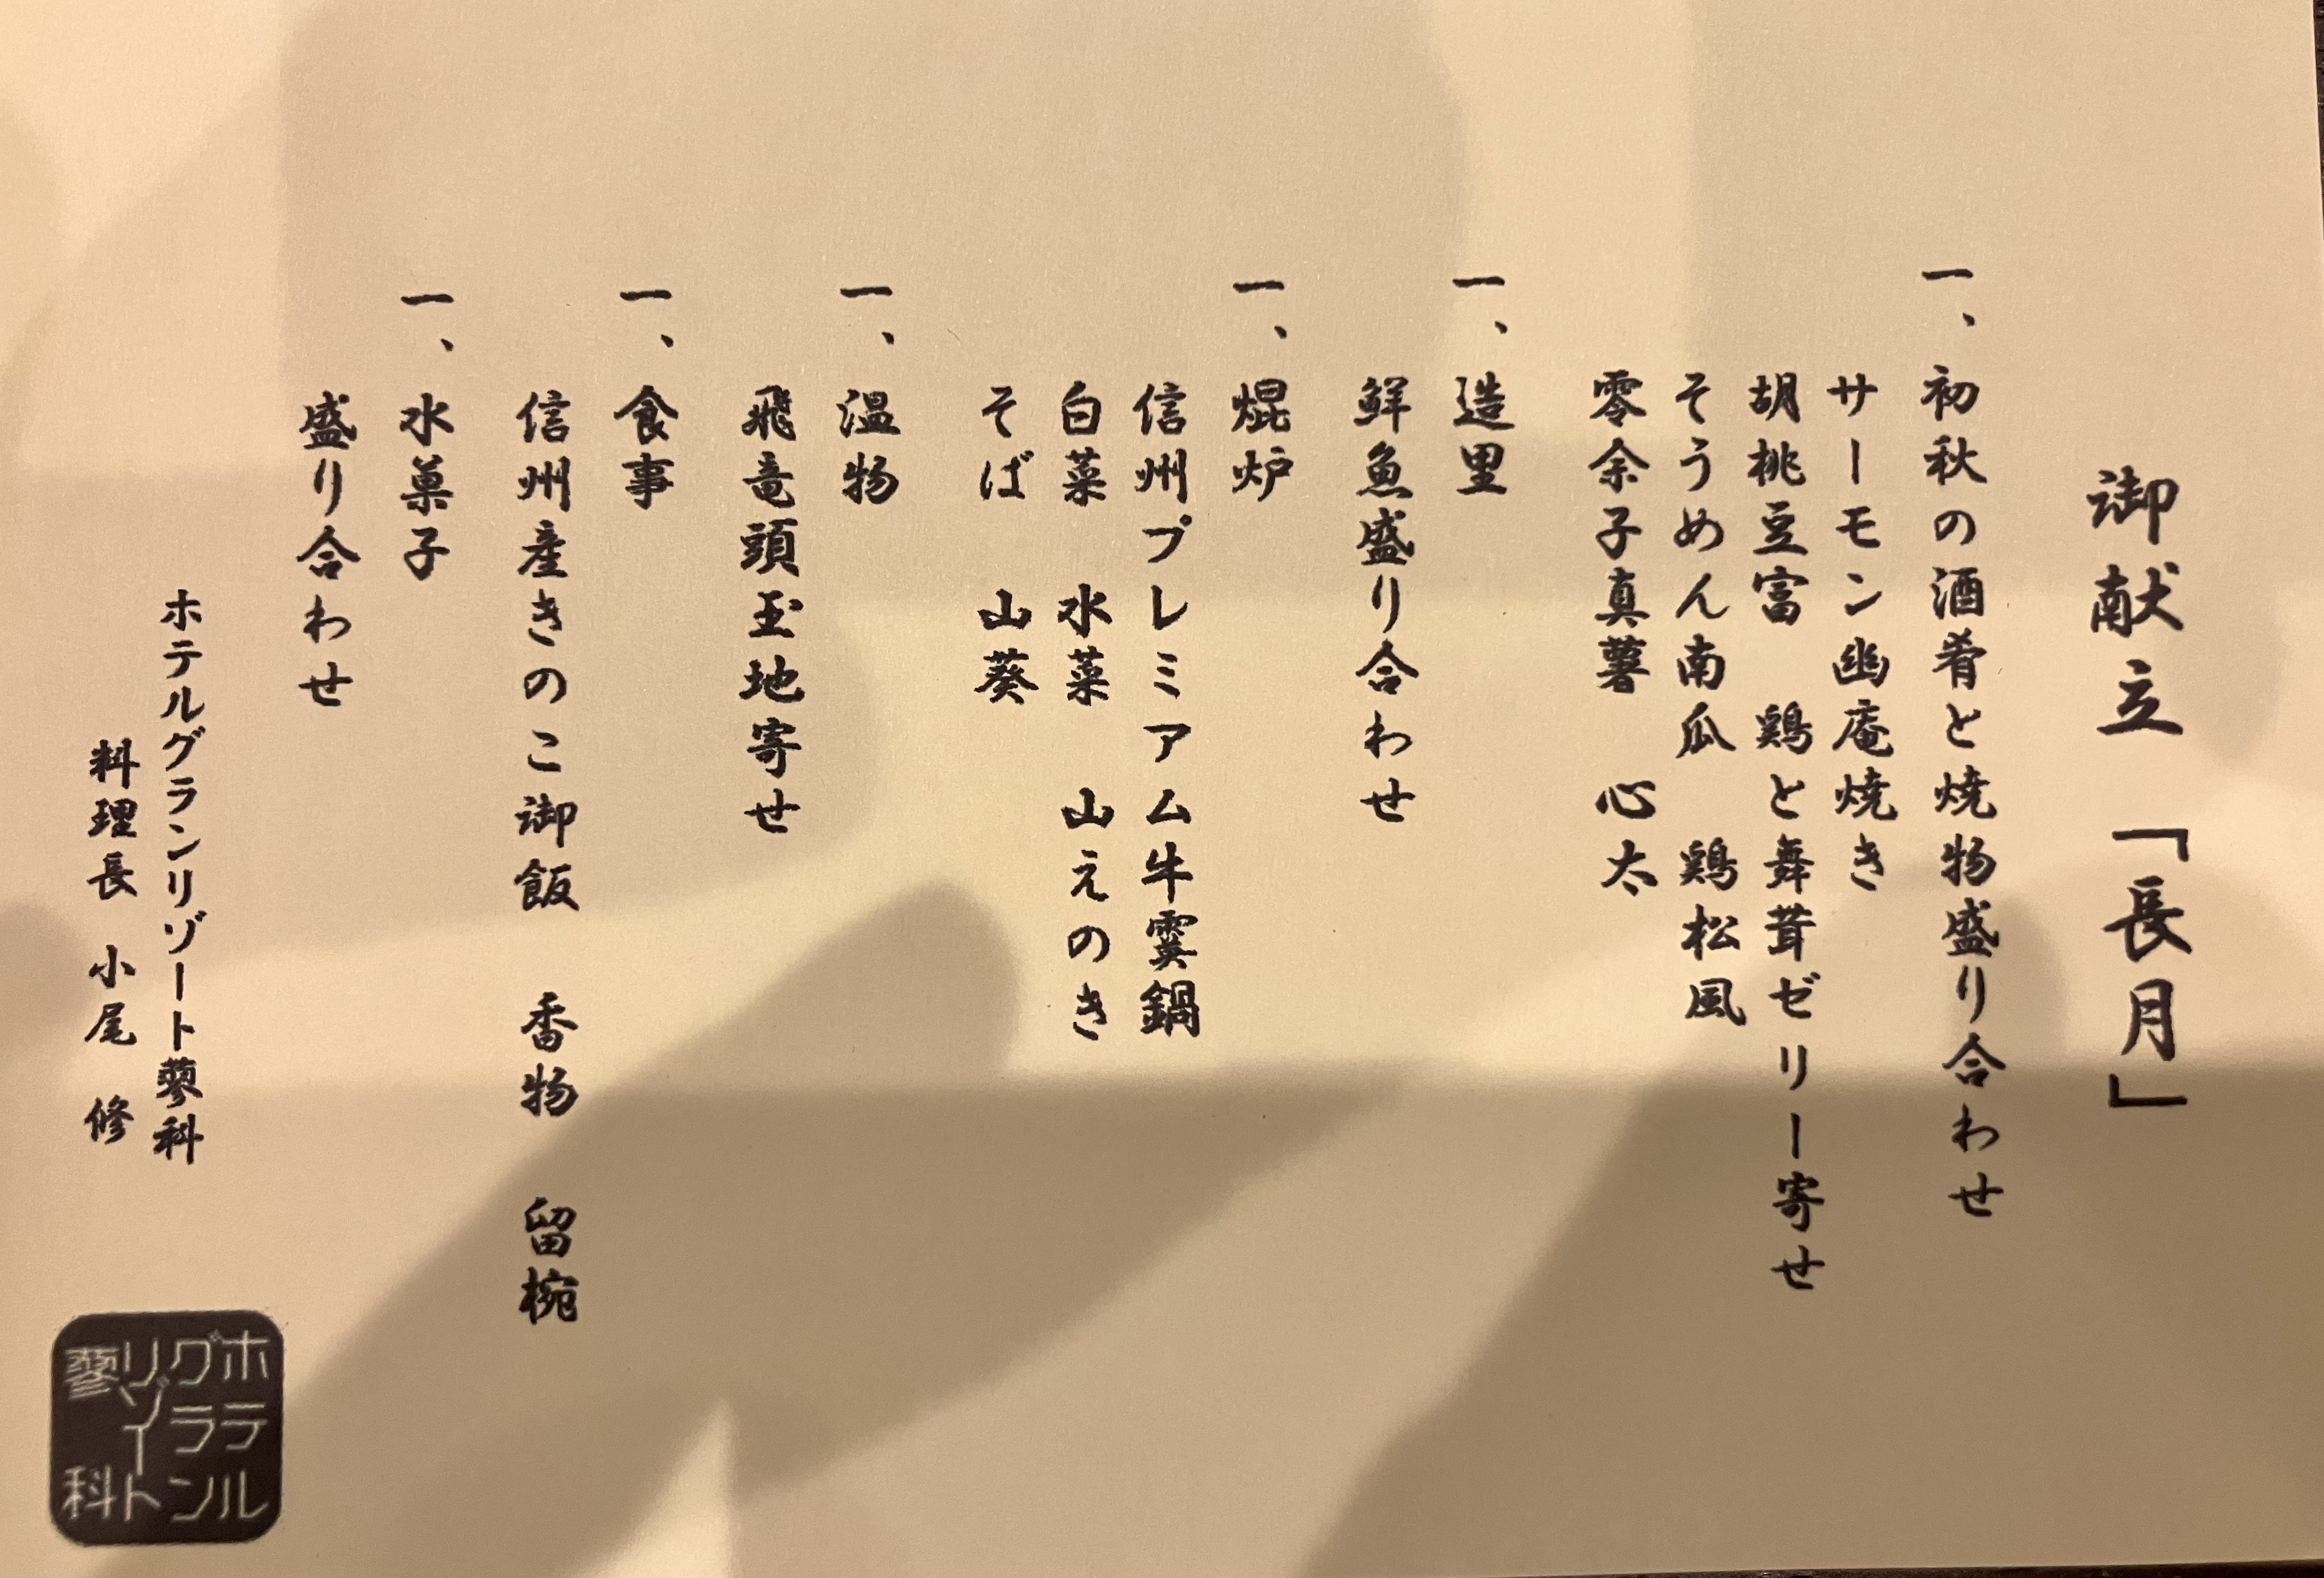 御献立「長月」
一、初秋の酒肴と焼物盛り合わせ
サーモン幽庵焼き
胡桃豆富　鶏と舞茸ゼリー寄せ
そうめん南瓜　鶏松風
零余子真薯　心太
一、造里
鮮魚盛り合わせ
一、焜炉
信州プレミアム牛霙鍋
白菜　水菜　山えのき
そば　山葵
一、温物
飛竜頭玉地寄せ
一、食事
信州産きのこ御飯　香物　留椀
一、水菓子
盛り合わせ
ホテルグランリゾート蓼科
料理長　小尾　修
ホテル
グラン
リゾート
蓼科